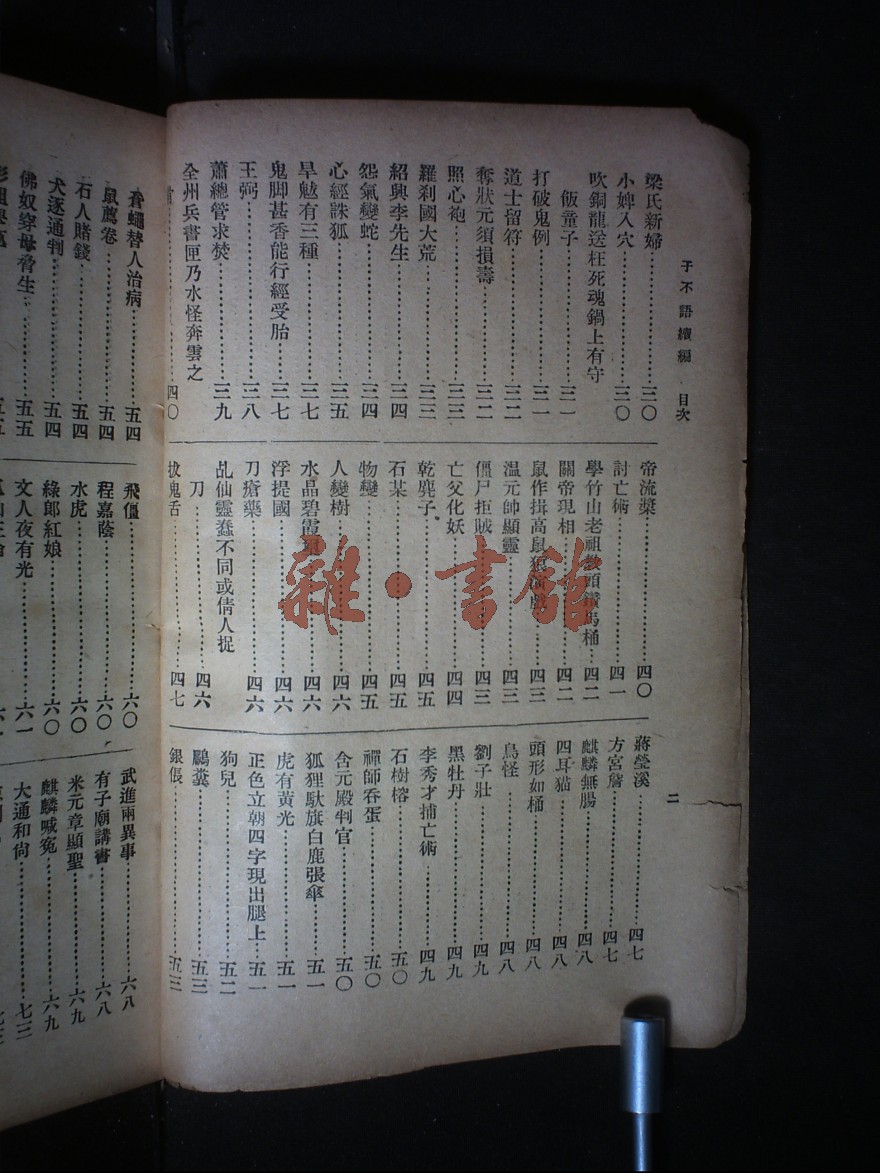 子不語續編 目次
二
梁氏新婦……三〇
小婢入穴……三〇
吹銅龍送枉死魂鍋上有守
飯童子……三一
打破鬼例……三一
道士留符……三二
奪狀元須損壽……三二
照心袍……三三
羅刹國大荒……三三
紹興李先生……三四
怨氣變蛇……三四
心經誅狐……三五
旱魃有三種……三七
鬼脚甚香能行經受胎……三七
王弼……三八
蕭總管求焚……三九
全州兵書匣乃水怪奔雲之
……四〇
帝流漿……四〇
討亡術……四一
學竹山老祖教頭鑽馬桶……四二
關帝現相……四二
鼠作揖高鼠狼演戲……四三
温元帥顯靈……四三
僵尸拒賊……四三
亡父化妖……四四
乾麂子……四五
石某……四五
物變……四五
人變樹……四六
水晶碧霞……四六
浮提國……四六
刀瘡藥……四六
乩仙靈蠢不同或倩人捉
刀……四六
拔鬼舌……四七
蔣瑩溪……四七
方宮詹……四七
麒麟無腸……四八
四耳猫……四八
頭形如桶……四八
鳥怪……四八
劉子壯……四九
黑牡丹……四九
李秀才捕亡術……四九
石樹榕……五〇
禪師吞蛋……五〇
含元殿判官……五〇
狐狸馱旗白鹿張傘……五一
虎有黃光……五一
正色立朝四字現出腿上……五一
狗兒……五二
鵩糞……五三
銀倀……五三
蒼蠅替人治病……五四
鼠薦卷……五四
石人賭錢……五四
犬逐通判……五四
佛奴穿母脅生……五五
飛僵……六〇
程嘉蔭……六〇
水虎……六〇
綠郎紅娘……六〇
文人夜有光……六一
武進兩異事……六八
有子廟講書……六八
米元章顯聖……六九
麒麟喊冤……六九
大通和尙……七三
雜·書館